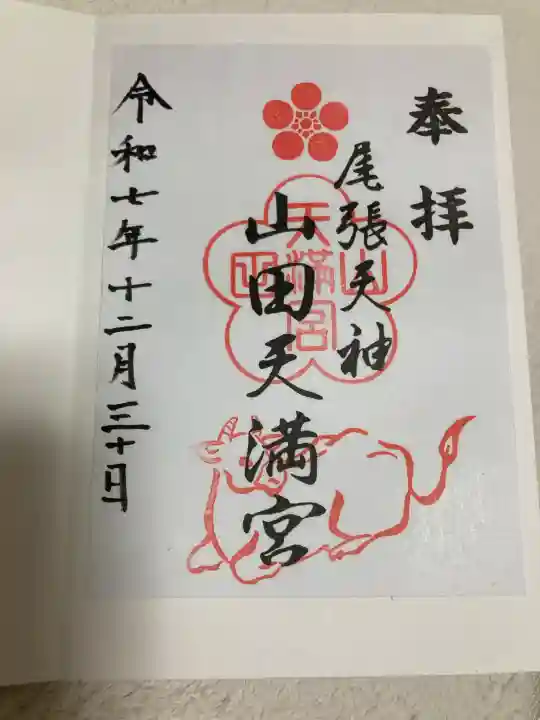 奉拝
尾張天神
山田天満宮
山田
天満宮
令和七年十二月三十日